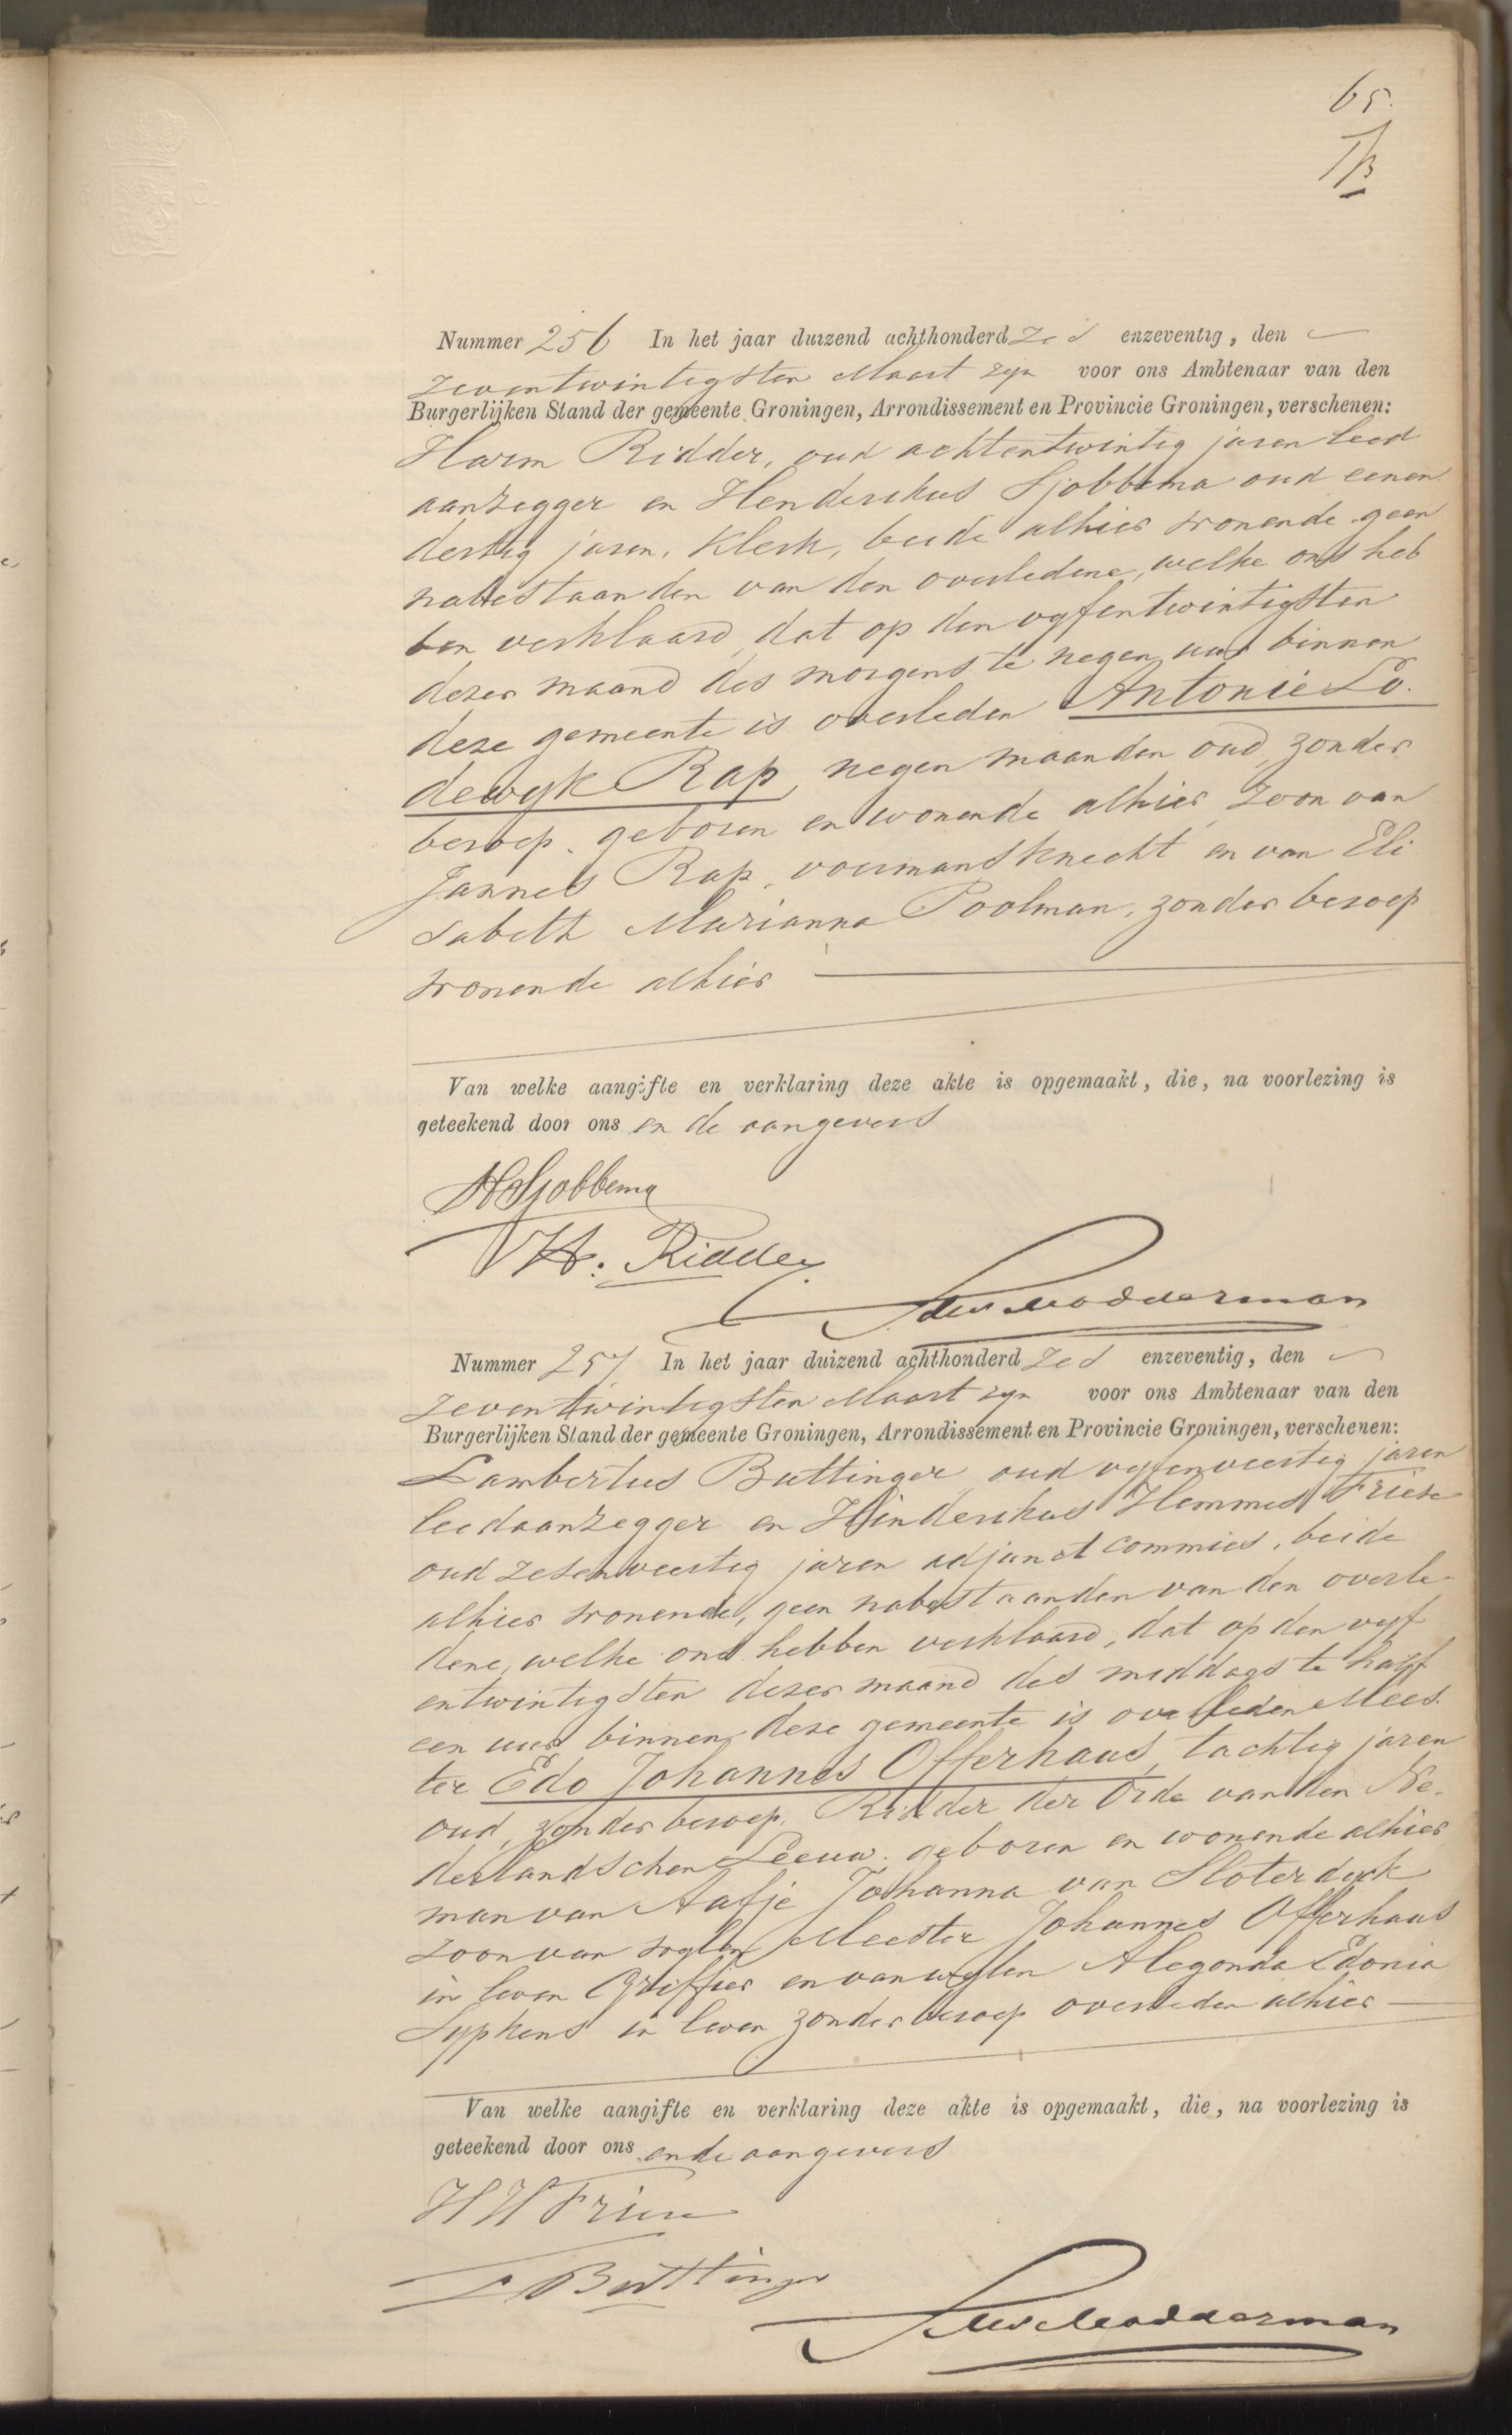 65.
Nummer 256 In het jaar duizend achthonderd zes enzeventig, den
zevenentwintigsten Maart zijn voor ons Ambtenaar van den
Burgerlijken Stand der gemeente Groningen, Arrondissement en Provincie Groningen, verschenen:
Harm Ridder, oud achtentwintig jaren leed
aanzegger en Henderikus Sjobbema oud eenen
dertig jaren, Klerk, beide alhier wonende geen
nabestaanden van den overledene, welke ons heb
ben verklaard, dat op den vijfentwintigsten
dezer maand des morgens te negen uur binnen
deze gemeente is overleden Antonie Lo.
dewijk Rap, negen maanden oud, zonder
beroep, geboren en wonende alhier, zoon van
Jannes Rap, voermansknecht en van Eli
sabeth Marianna Poolman, zonder beroep
wonende alhier
Van welke aangifte en verklaring deze akte is opgemaakt, die, na voorlezing is
geteekend door ons en de aangevers
H Sjobbema
H. Ridder
Modderman
Nummer 257 In het jaar duizend achthonderd zes enzeventig, den
zevenentwintigsten Maart zijn voor ons Ambtenaar van den
Burgerlijken Stand der gemeente Groningen, Arrondissement en Provincie Groningen, verschenen:
Lambertus Buttinger oud vijfenveertig jaren
leedaanzegger en Hinderikus Hemmes Friese
oud zesenveertig jaren adjunct commies, beide
alhier wonende, geen nabestaanden van den overle
dene, welke ons hebben verklaard, dat op den vijf
entwintigsten dezer maand des middags te half
een uur binnen deze gemeente is overleden Mees
ter Edo Johannes Offerhaus, tachtig jaren
oud, zonder beroep, Ridder der Orde van den Ne.
derlandschen Leeuw. geboren en wonende alhier
man van Aafje Johanna van Sloterdijck
zoon van wijlen Meester Johannes Offerhaus
in leven Griffier en van wijlen Alegonda Edonia
Sypkens in leven zonder beroep overleden alhier
Van welke aangifte en verklaring deze akte is opgemaakt, die, na voorlezing is
geteekend door ons en de aangevers
H H Friese
L Buttinger
Modderman